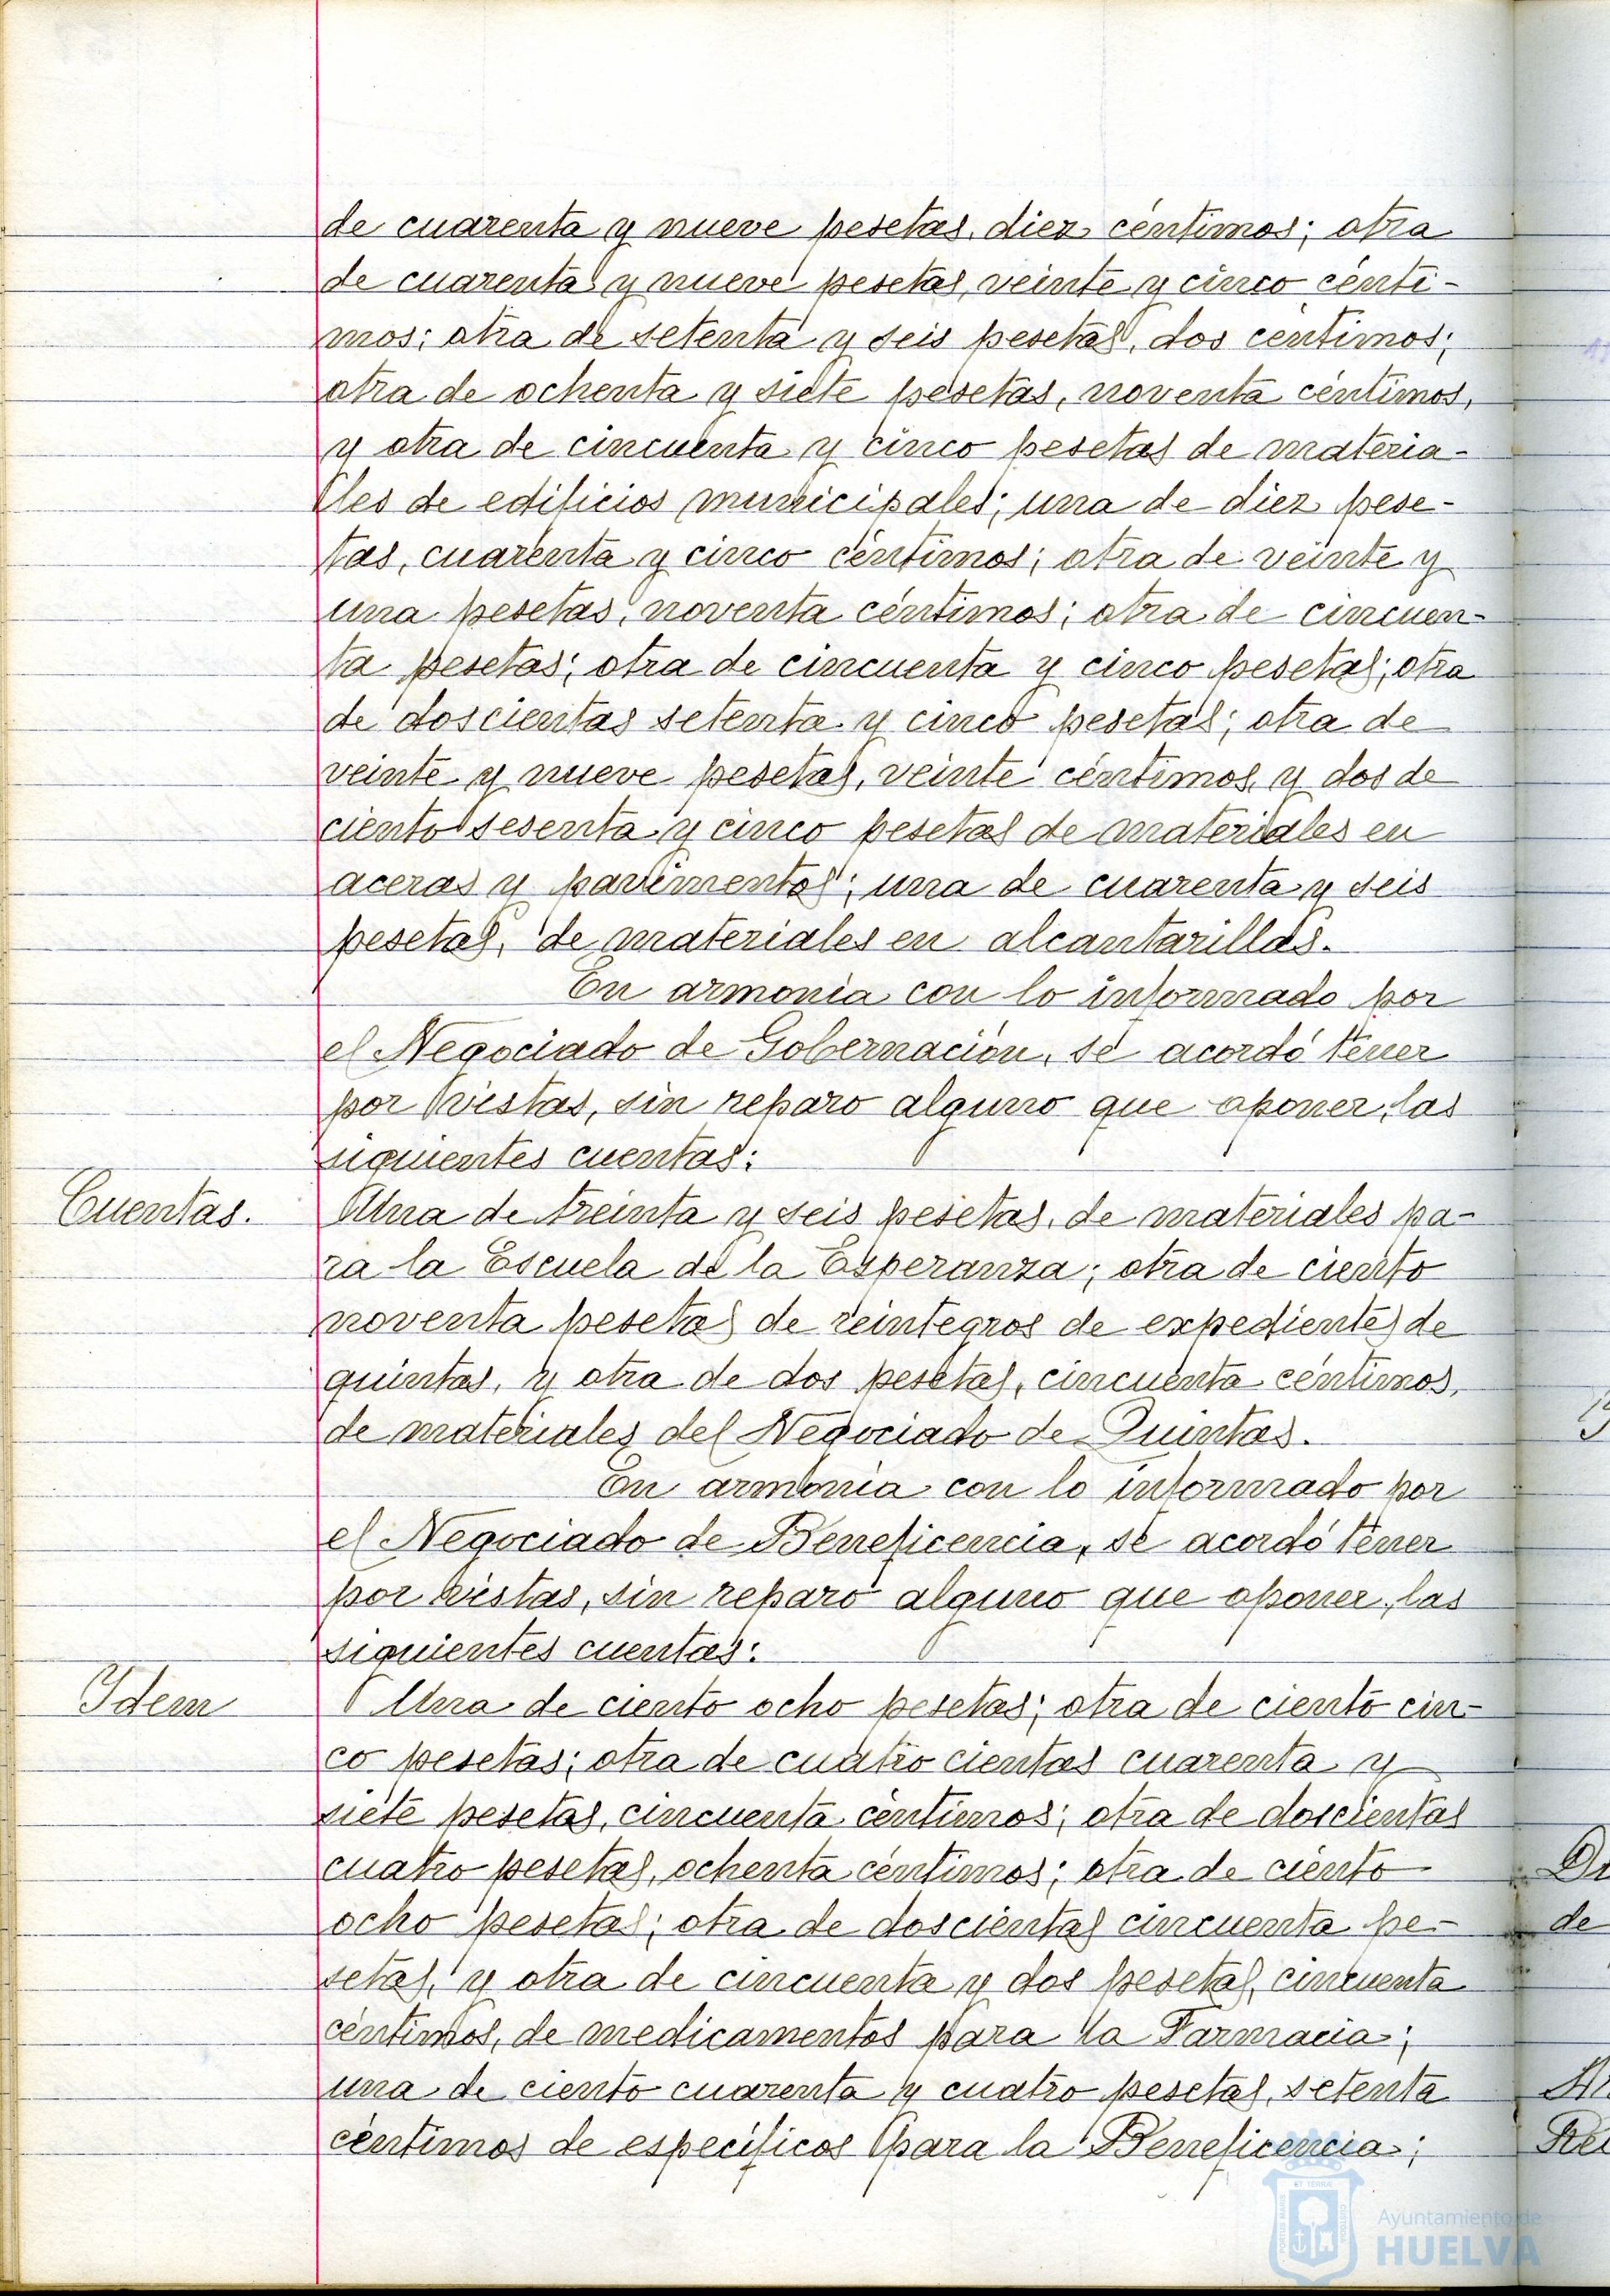 de cuarenta y nueve pesetas, diez céntimos; otra
de cuarenta y nueve pesetas, veinte y cinco cénti-
mos; otra de setenta y seis pesetas, dos centimos;
otra de ochenta y siete pesetas, noventa céntimos,
y otra de cincuenta y cinco pesetas de materia-
les de edificios municipales; una de diez pese-
tas, cuarenta y cinco céntimos; otra de veinte y
una pesetas, noventa céntimos; otra de cincuen-
ta pesetas; otra de cincuenta y cinco pesetas; otra
de doscientas setenta y cinco pesetas; otra de
veinte y nueve pesetas, veinte céntimos, y dos de
ciento sesenta y cinco pesetas de materiales en
aceras y pavimentos; una de cuarenta y seis
pesetas, de materiales en alcantarillas.
En armonía con lo informado por
el Negociado de Gobernación, se acordó tener
por vistas, sin reparo alguno que oponer, las
siguientes cuentas:
Cuentas. Una de treinta y seis pesetas, de materiales pa-
ra la Escuela de la Esperanza; otra de ciento
noventa pesetas de reintegros de expedientes de
quintas, y otra de dos pesetas, cincuenta céntimos,
de materiales del Negociado de Quintas.
En armonía con lo informado por
el Negociado de Beneficencia, se acordó tener
por vistas, sin reparo alguno que oponer, las
siguientes cuentas:
Idem Una de ciento ocho pesetas; otra de ciento cin-
co pesetas; otra de cuatro cientas cuarenta y
siete pesetas, cincuenta céntimos; otra de doscientas
cuatro pesetas, ochenta céntimos; otra de ciento
ocho pesetas; otra de doscientas cincuenta pe-
setas, y otra de cincuenta y dos pesetas, cincuenta
céntimos, de medicamentos para la Farmacia;
una de ciento cuarenta y cuatro pesetas, setenta
céntimos de específicos para la Beneficencia;
Ayuntamiento de
HUELVA